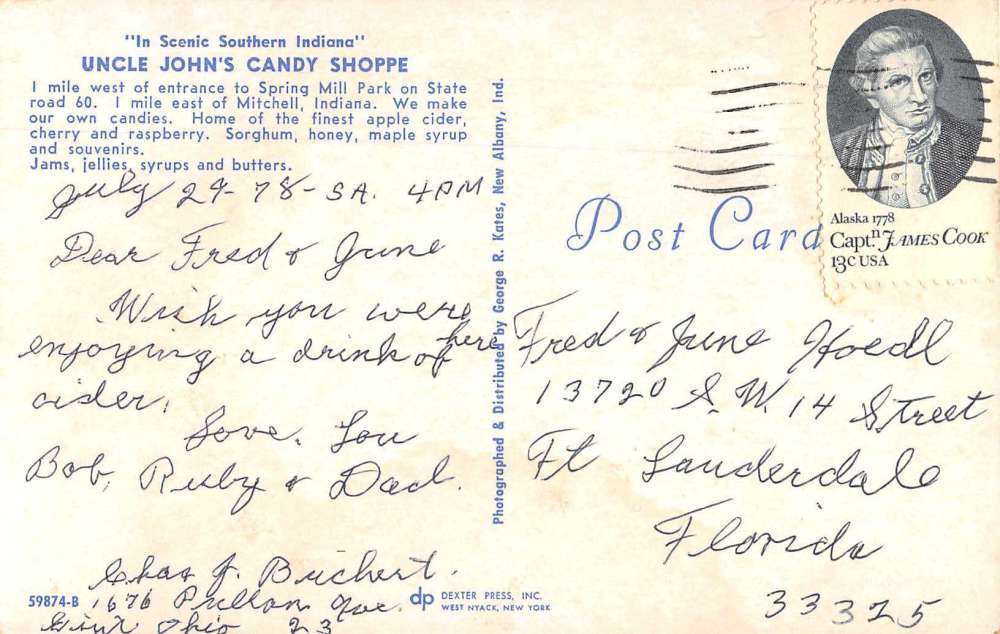 "In Scenic Southern Indiana"
UNCLE JOHN'S CANDY SHOPPE
1 mile west of entrance to Spring Mill Park on State
road 60. 1 mile east of Mitchell, Indiana. We make
our own candies. Home of the finest apple cider,
cherry and raspberry. Sorghum, honey, maple syrup
and souvenirs.
Jams, jellies, syrups and butters.
July 29-78-SA. 4PM
Dear Fred & June
Wish you were
here
enjoying a drink of
cider.
Love. Lou
Bob, Ruby & Dad.
Chas J. Buchert.
1676 Pullan Ave.
Ohio 23
59874-B
dp DEXTER PRESS, INC.
WEST NYACK, NEW YORK
Photographed & Distributed by George R. Kates, New Albany, Ind.
Post Card
Alaska 1778
Capt.n JAMES COOK
13c USA
Fred & June Hoedl
13720 S.W. 14 Street
Ft Lauderdale
Florida
33325